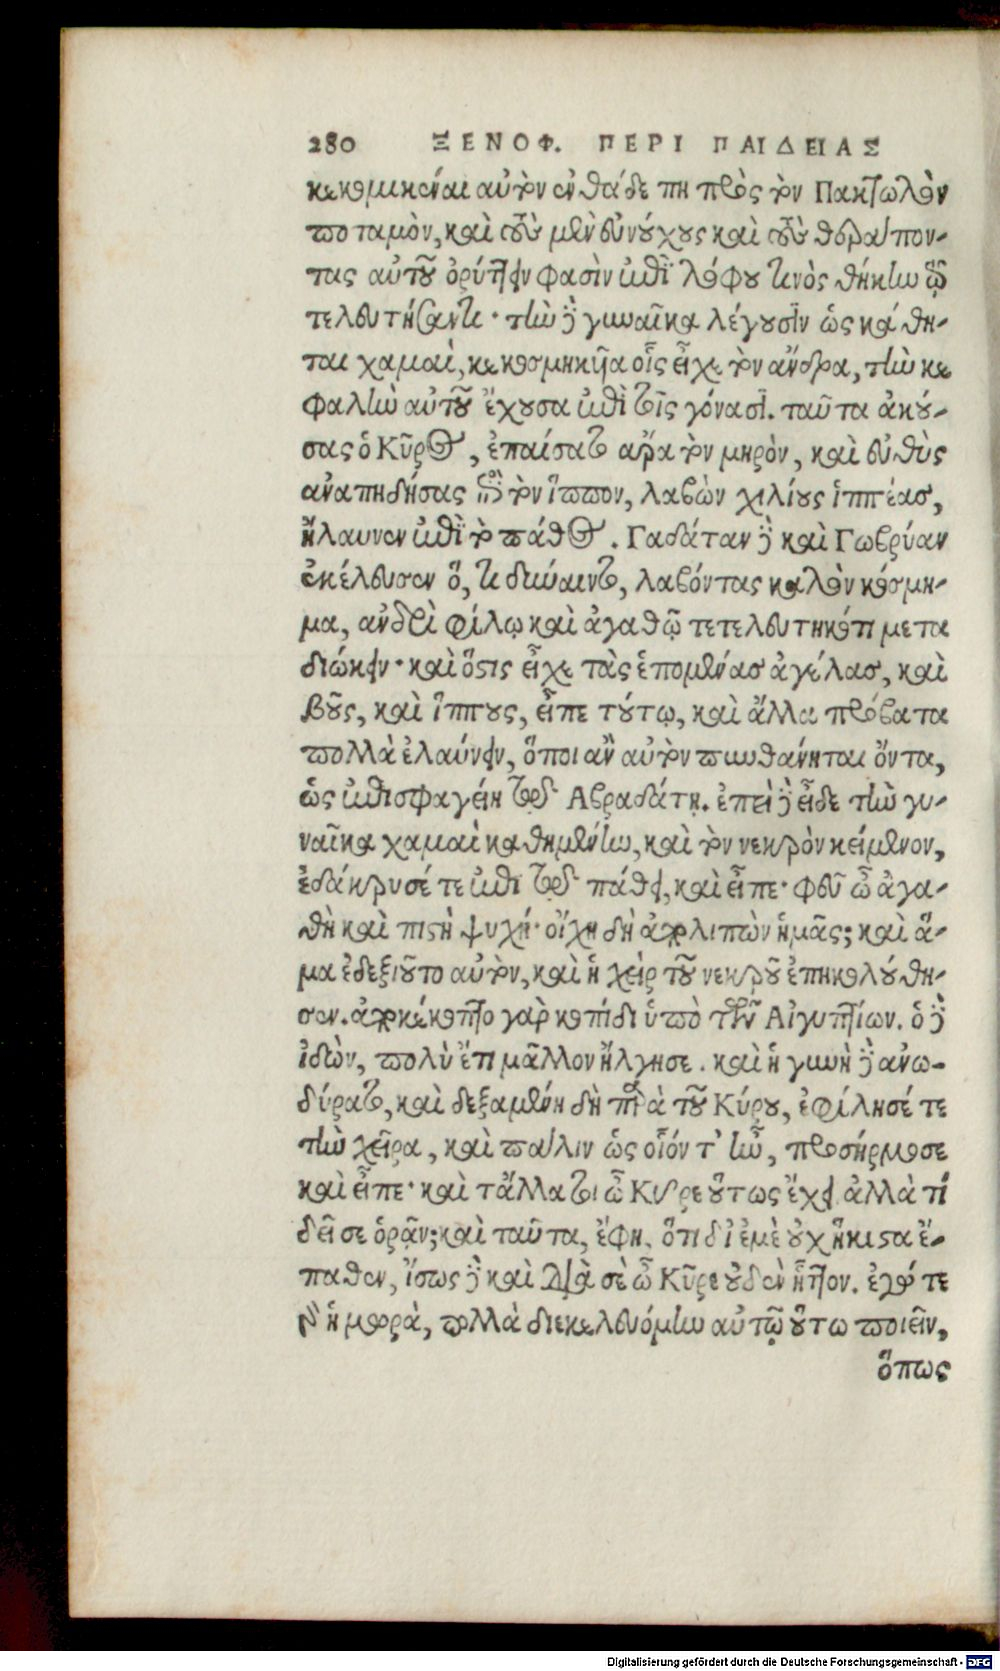 280 ΞΕΝΟΦ. ΠΕΡΙ ΠΑΙΔΕΙΑΣ
κεκομικέναι αὐτὸν ἐνθάδε πη πρὸς τὸν Πακτωλὸν
ποταμὸν, καὶ τοὺς μὲν εὐνούχους καὶ τοὺς θεράπον-
τας αὐτοῦ ὀρύττειν φασὶν ἐπὶ λόφου τινὸς θήκην τῷ
τελευτήσαντι· τὴν δὲ γυναῖκα λέγουσιν ὡς κάθη-
ται χαμαὶ, κεκοσμηκυῖα οἷς εἶχε τὸν ἄνδρα, τὴν κε
φαλὴν αὐτοῦ ἔχουσα ἐπὶ τοῖς γόνασι. ταῦτα ἀκού-
σας ὁ Κῦρος, ἐπαίσατο ἄρα τὸν μηρὸν, καὶ εὐθὺς
ἀναπηδήσας ἐπὶ τὸν ἵππον, λαβὼν χιλίους ἱππέας,
ἤλαυνεν ἐπὶ τὸ πάθος. Γαδάταν δὲ καὶ Γωβρύαν
ἐκέλευσεν ὅ, τι δύναιντο, λαβόντας καλὸν κόσμη-
μα, ἀνδρὶ φίλῳ καὶ ἀγαθῷ τετελευτηκότι μετα
διώκειν· καὶ ὅστις εἶχε τὰς ἑπομένας ἀγέλας, καὶ
βοῦς, καὶ ἵππους, εἶπε τούτῳ, καὶ ἄλλα πρόβατα
πολλὰ ἐλαύνειν, ὅποι ἂν αὐτὸν πυνθάνηται ὄντα,
ὡς ἐπισφαγείη τῷ Ἀβραδάτῃ. ἐπεὶ δὲ εἶδε τὴν γυ-
ναῖκα χαμαὶ καθημένην, καὶ τὸν νεκρὸν κείμενον,
ἐδάκρυσέ τε ἐπὶ τῷ πάθει, καὶ εἶπε· φεῦ ὦ ἀγα-
θὴ καὶ πιστὴ ψυχή· οἴχῃ δὴ ἀπολιπὼν ἡμᾶς; καὶ ἅ-
μα ἐδεξιοῦτο αὐτὸν, καὶ ἡ χεὶρ τοῦ νεκροῦ ἐπηκολούθη-
σεν. ἀποκέκοπτο γὰρ κοπίδι ὑπὸ τῶν Αἰγυπτίων. ὁ δὲ
ἰδὼν, πολὺ ἔτι μᾶλλον ἤλγησε. καὶ ἡ γυνὴ δὲ ἀνω-
δύρατο, καὶ δεξαμένη δὴ παρὰ τοῦ Κύρου, ἐφίλησέ τε
τὴν χεῖρα, καὶ πάλιν ὡς οἷόν τ' ἦν, προσήρμοσε
καὶ εἶπε· καὶ τἄλλα τοι ὦ Κῦρε οὕτως ἔχει ἀλλὰ τί
δεῖ σε ὁρᾷν; καὶ ταῦτα, ἔφη, ὅτι δι' ἐμὲ οὐχ ἥκιστα ἔ-
παθεν, ἴσως δὲ καὶ διὰ σὲ ὦ Κῦρε οὐδὲν ἧττον. ἐγώ τε
γὰρ ἡ μωρὰ, πολλὰ διεκελευόμην αὐτῷ οὕτω ποιεῖν,
ὅπως
Digitalisierung gefördert durch die Deutsche Forschungsgemeinschaft - DFG